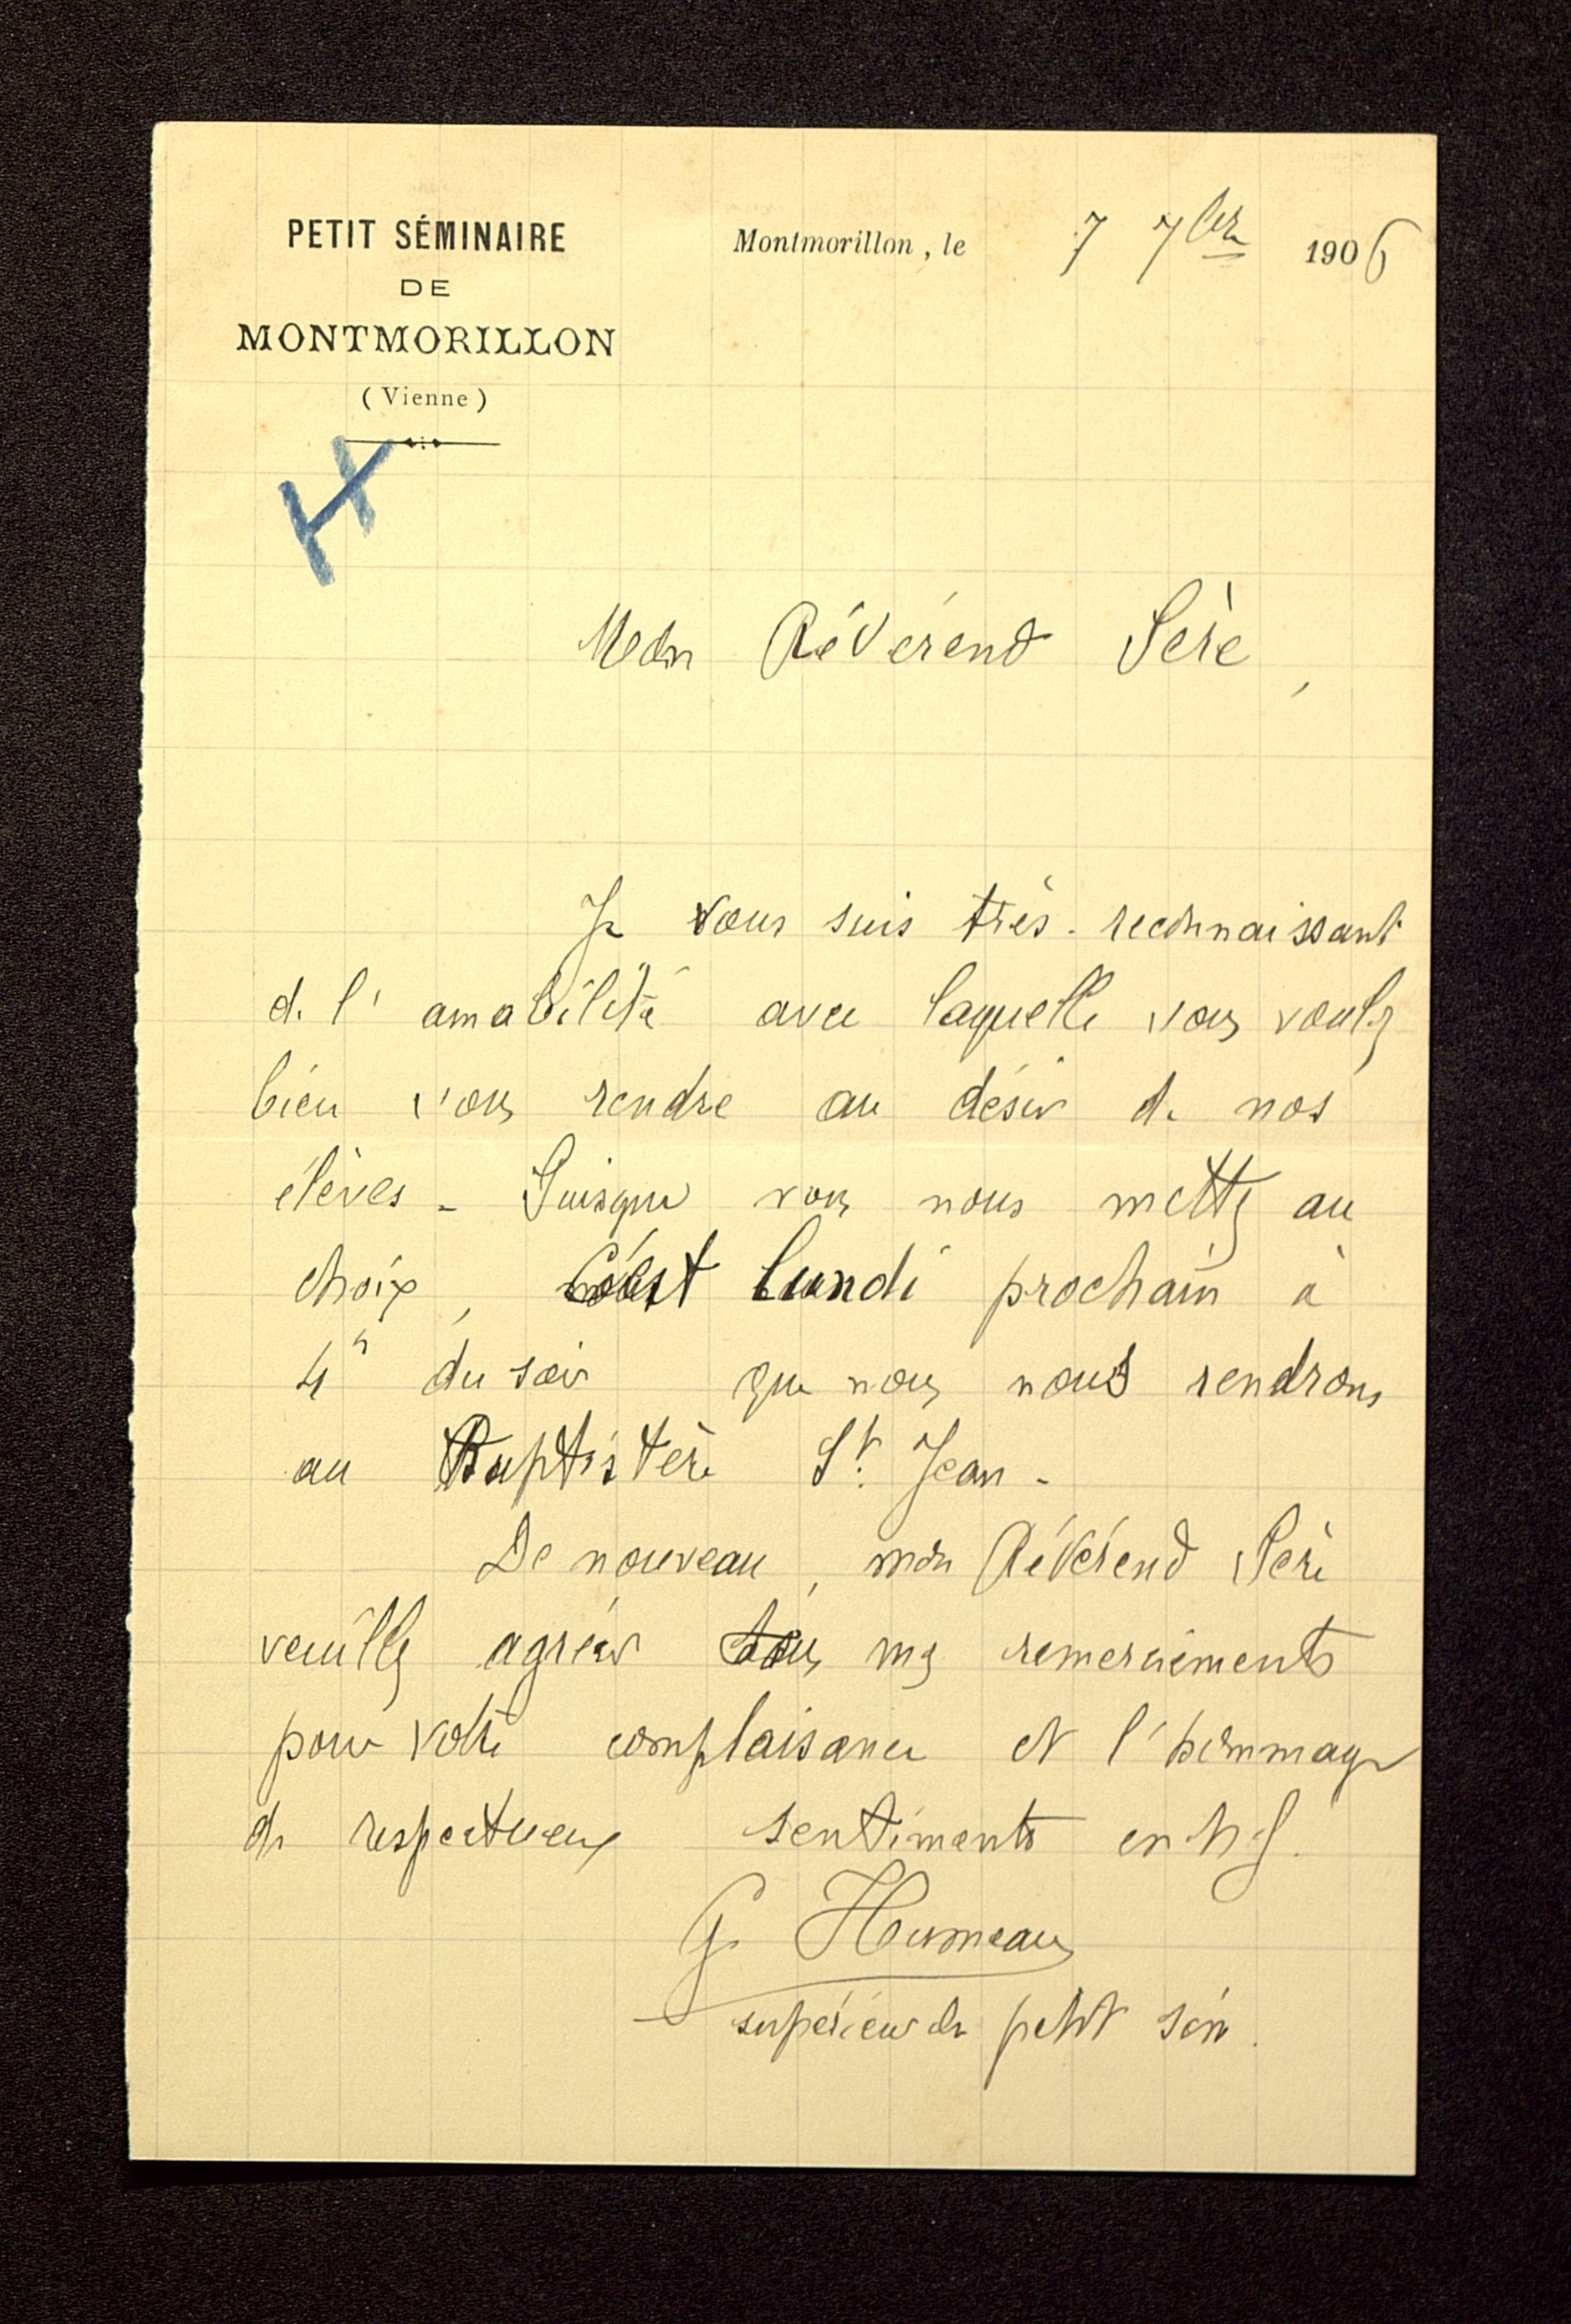 PETIT SÉMINAIRE
DE
MONTMORILLON
(Vienne)
Montmorillon, le 7 7bre 1906
H
Mon Révérend Père,
Je vous suis très-reconnaissant
de l'amabilité avec laquelle vous voulez
bien vous rendre au désir de nos
élèves - Puisque vous nous mettez au
choix, c'est lundi prochain à
4h du soir que nous nous rendrons
au Baptistère St. Jean -
De nouveau, mon Révérend Père
veuillez agréer tous mes remerciements
pour votre complaisance et l'hommage
de respectueux sentiments en N.S.
G. Humeau
supérieur du petit sém.